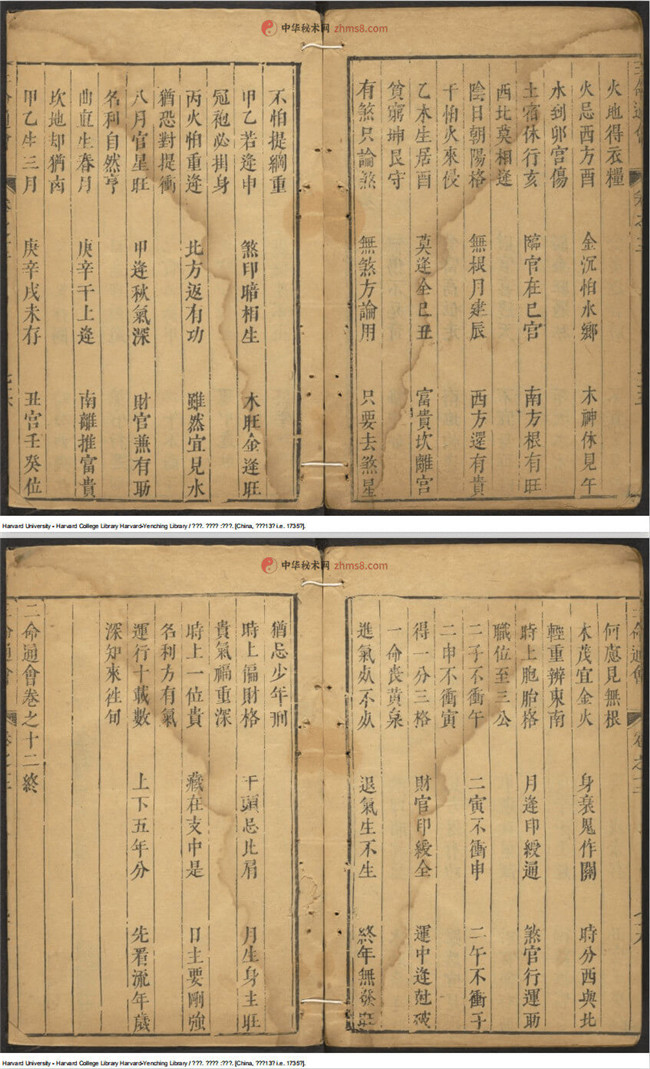 中华秘术网 zhms8.com
火地得衣糧
火忌西方酉 金沉怕水鄉 木神休見午
水到卯宮傷
土宿休行亥 臨官在巳宮 南方根有旺
西北莫相逢
陰日朝陽格 無根月建辰 西方還有貴
干怕火來侵
乙木生居酉 莫逢全巳丑 富貴坎離宮
貧窮坤艮守
有煞只論煞 無煞方論用 只要去煞星
不怕提綱重
甲乙若逢申 煞印暗相生 木旺金逢旺
冠袍必掛身
丙火怕重逢 北方返有功 雖然宜見水
猶恐對提衝
八月官星旺 甲逢秋氣深 財官兼有助
名利自然亨
曲直生春月 庚辛干上逢 南離推富貴
坎地却猶
甲乙生三月 庚辛戌未存 丑宮壬癸位
Harvard University - Harvard College Library Harvard-Yenching Library / ???. ???? :???. [China, ???13? i.e. 1735?].
中华秘术网 zhms8.com
何處見無根
木茂宜金火 身衰鬼作關 時分西與北
輕重辨東南
時上胞胎格 月逢印綬通 煞官行運助
職位至三公
二子不衝午 二寅不衝申 二午不衝子
二申不衝寅
得一分三格 財官印綬全 運中逢尅破
一命喪黃泉
進氣 不 退氣生不生 終年無發旺
猶忌少年刑
時上偏財格 干頭忌比肩 月生身主旺
貴氣福重深
時上一位貴 藏在支中是 日主要剛強
名利方有氣
運行十載數 上下五年分 先看流年歲
深知來往旬
三命通會卷之十二終
Harvard University - Harvard College Library Harvard-Yenching Library / ???. ???? :???. [China, ???13? i.e. 1735?].